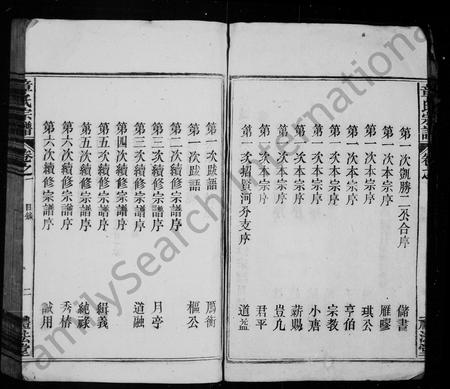 童氏宗譜
卷之
禮法堂
第一次凱勝二公合序 儲書
第一次本宗序 雁廖
第一次本宗序 琪公
第一次本宗序 亨伯
第一次本宗序 宗教
第一次本宗序 小唐
第一次本宗序 薪賜
第一次本宗序 豈凡
第一次本宗序 君平
第一次招賢河分支序 道益
第一次跋語 馬衡
第一次跋語 樞公
第二次續修宗譜序
第三次續修宗譜序 月亭
第三次續修宗譜序 道融
第四次續修宗譜序
第五次續修宗譜序 緝義
第五次續修宗譜序 純祿
第六次續修宗譜序 秀椿
第六次續修宗譜序 誠用
童氏宗譜
卷之
目錄
二
禮法堂
FamilySearch International